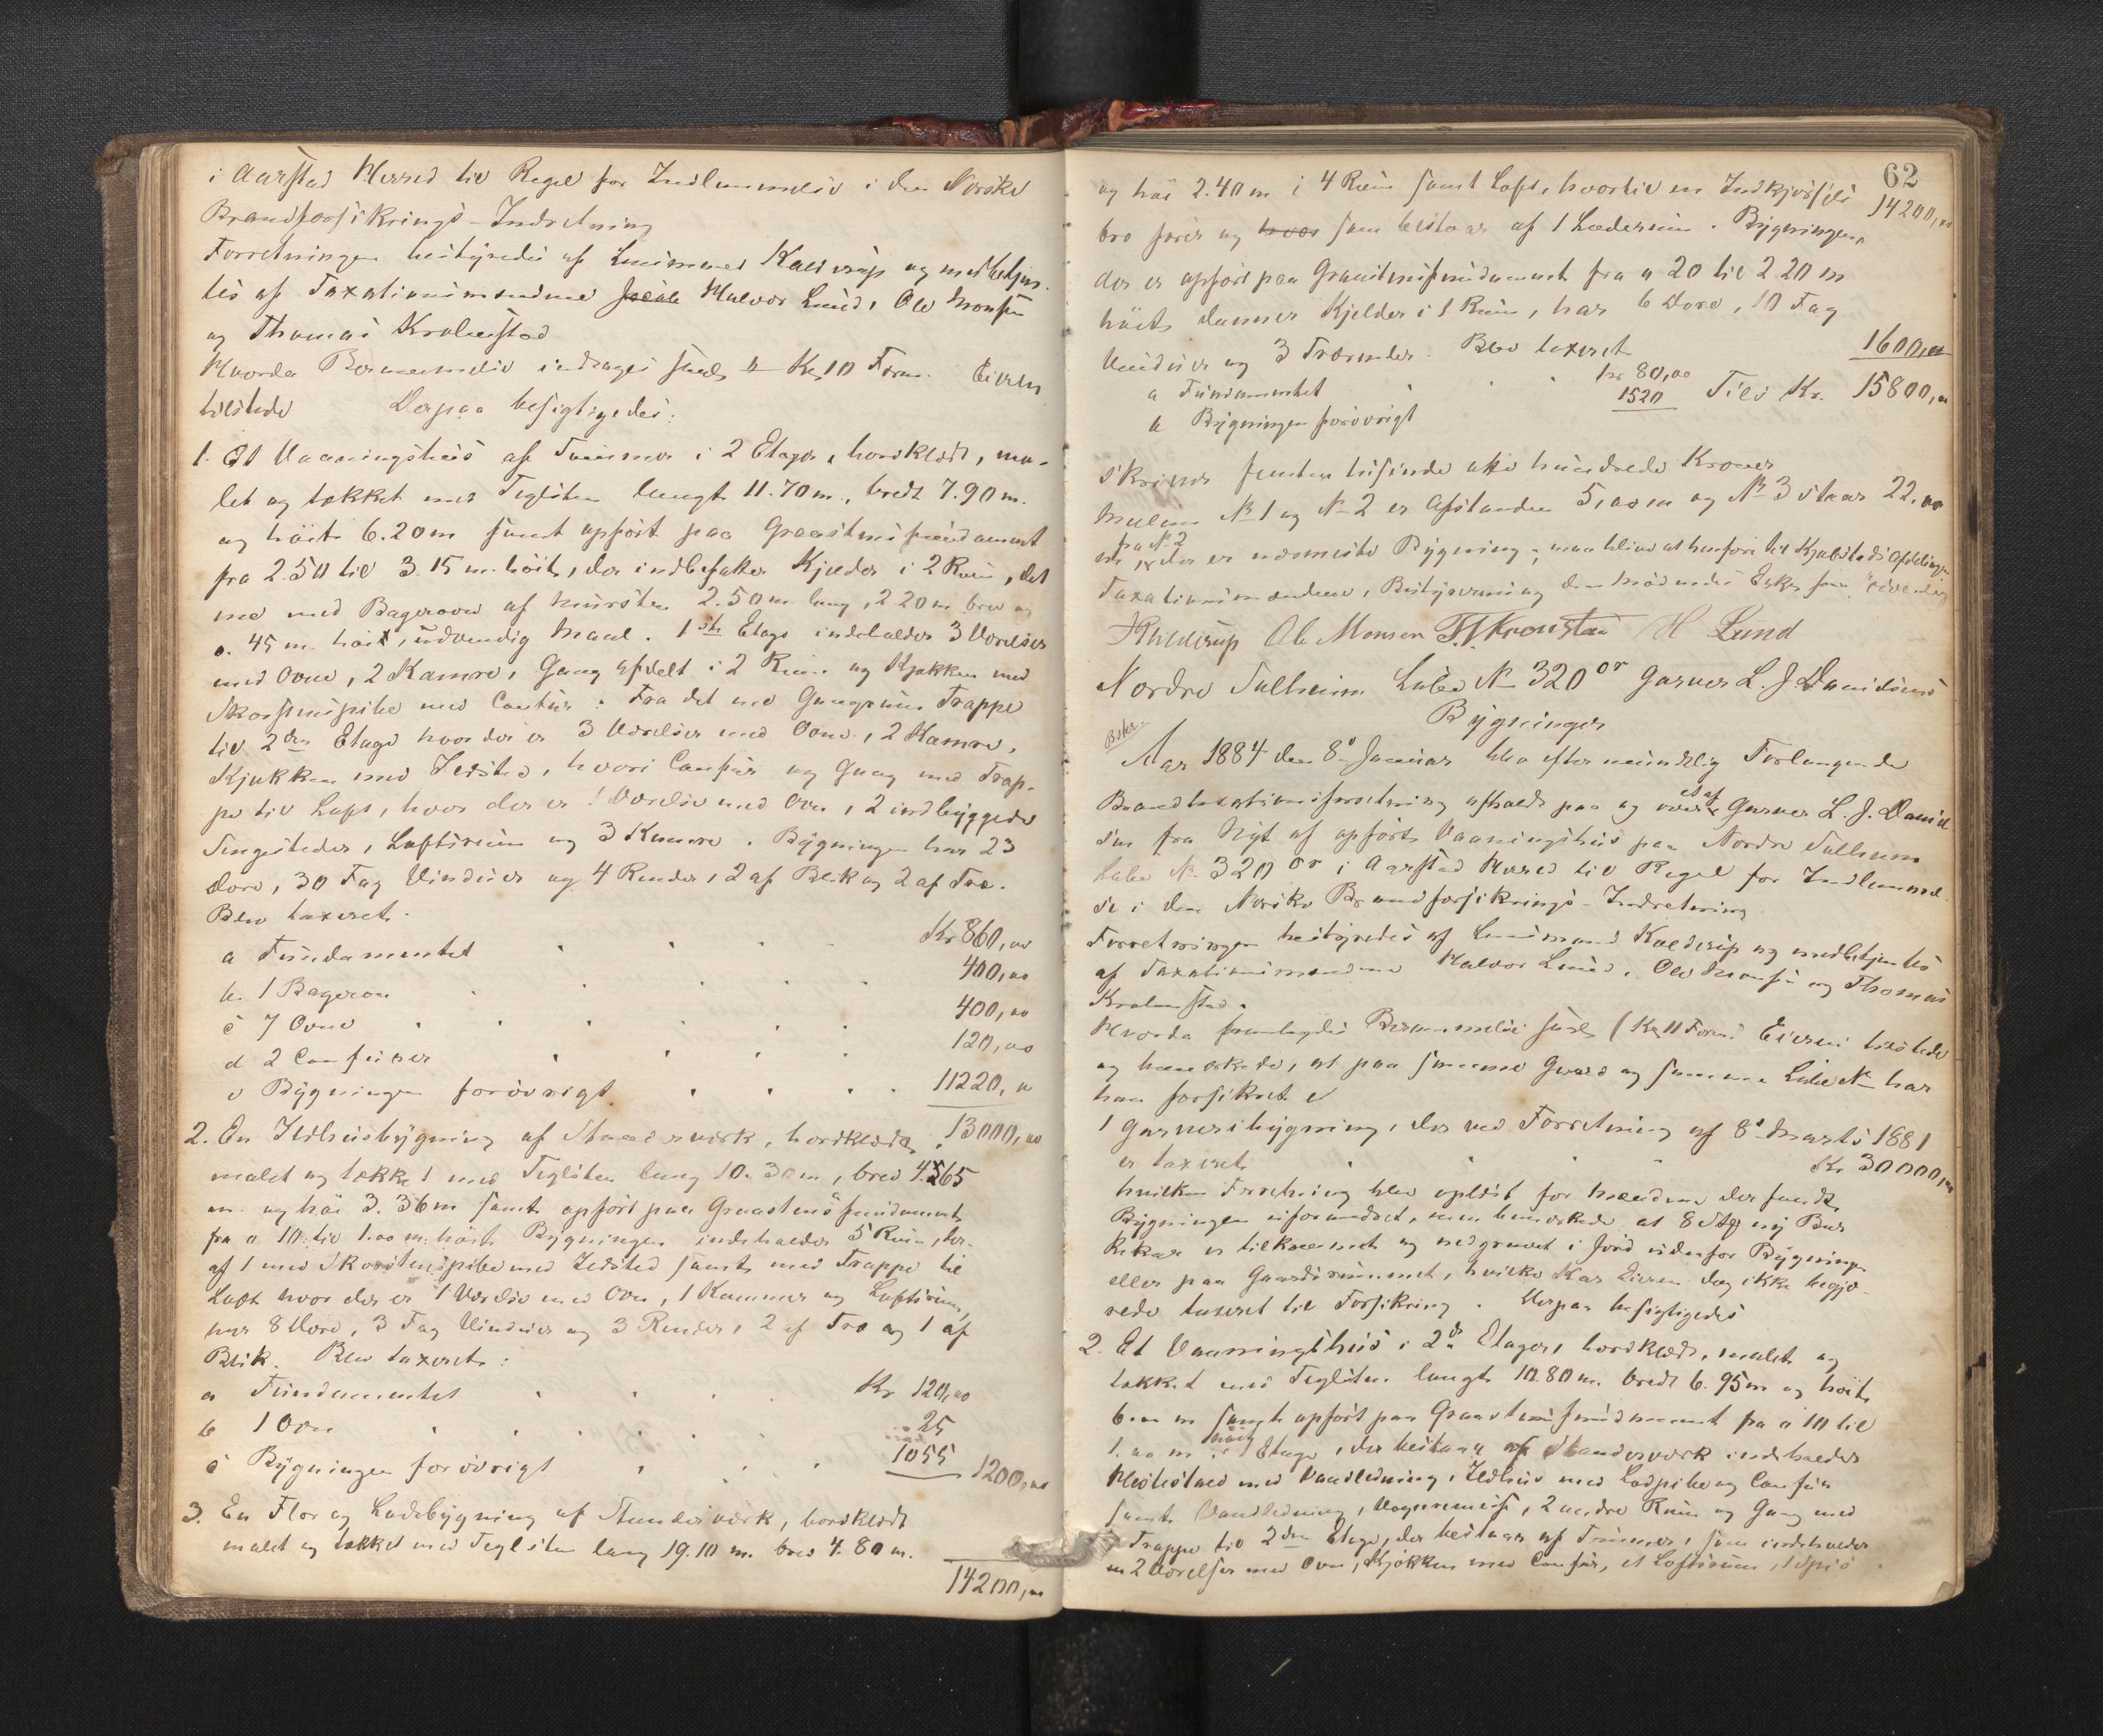 i Aarstad Herred til Regel for Indlemmelse i den Norske
Brandforsikrings-Indretning
Forretningen bestyredes af Lensmand Kaldrup og medbetjen-
tes af Taxationsmændene Halvor Lund, Ole Monsen
og Thomas Kronstad
Hvorda Berammelse indtages saal. Kr 10 Form. Eieren
tilstede Derpaa besigtigedes:
1. Et Vaaningshus af Tømmer i 2 Etager, bordklædt, ma-
let og tækket med Teglsten langt 11.70 m., bredt 7.90 m.
og høit 6.20 m samt opført paa Graastensfundament
fra 2.50 til 3.15 m. høit, der indbefatter Kjelder i 2 Rum, det
ene med Bagerovn af Mursten 2.50 m. lang, 2 20 m bred og
0.45 m. høit, udvendig Maal. 1ste Etage indeholder 3 Værelser
med Ovne, 2 Kamre, Gang afdelt i 2 Rum og Kjøkken med
Skorstenspibe med Comfur. Fra det ene Gangrum Trappe
til 2den Etage hvor der er 3 Værelser med Ovne, 2 Kamre,
Kjøkken med Ildsted, hvori Comfur og Gang med Trap-
pe til Loft, hvor der er 1 Værelse med Ovn, 2 indbyggede
Sengesteder, Loftsrum og 3 Kamre. Bygningen har 23
Døre, 30 Fag Vinduer og 4 Render, 2 af Blik og 2 af Træ.
Blev taxeret.
a Fundamentet Kr 860,00
b. 1 Bagerovn 400,00
c 7 Ovne 400,00
d 2 Comfurer 120,00
e Bygningen forøvrigt 11220,00
13000,00
2. En Ildhusbygning af Standerværk, bordklædt,
malet og tækket med Teglsten lang 10.30 m, bred 4.565
m. og høi 3.36 m samt opført paa Graastensfundament
fra 0.10 til 1.00 m. høit Bygningen indeholder 5 Rum, der-
af 1 med Skorstenspibe med Ildsted samt med Trappe til
Loft hvor der er 1 Værelse med Ovn, 1 Kammer og Loftsrum,
har 8 Døre, 3 Fag Vinduer og 3 Render, 2 af Træ og 1 af
Blik. Blev taxeret:
a Fundamentet Kr 120,00
b 1 Ovn 25
c Bygningen forøvrigt 1055 1200,00
3. En Flor og Ladebygning af Standerværk, bordklædt
malet og tækket med Teglsten lang 19.10 m. bred 4.80 m.
14200,00
62
og høi 2.40 m i 4 Rum samt Loft, hvortil en Indkjørsels 14200,00
bro fører og som bestaar af 1 Laderum. Bygningen,
der er opført paa Graastensfundament fra 0 20 til 2 20 m
høit, danner Kjelder i 1 Rum, har 6 Døre, 10 Fag
Vinduer og 3 Trærender. Blev taxeret
a Fundamentet Kr 80,00 1600,00
b Bygningen forøvrigt 1520 Tils Kr. 15800,00
skriver femten tusinde otte hundrede Kroner
Mellem No 1 og No 2 er Afstanden 5,00 m og No 3 staar 22.00
m fra No 2 der er nærmeste Bygning; man blev at henføre til Afdeling
Taxationsmændene, Bestyrerens og den
Kalldrup Ole Monsen T. Kronstad H Lund
Nordre Solheim Løbe No 320 or Garver L. J. Danielsens
Bygninger
Aar 1884 den 8de Januar blev efter mundtlig Forlangende
Brandtaxationsforretning afholdt paa og over et af Garver L. J. Daniel
sen fra Nyt af opført Vaaningshus paa Nordre Solheim
Løbe No 320 or i Aarstad Herred til Regel for Indlemmel-
se i den Norske Brandforsikrings-Indretning
Forretningen bestyredes af Lensmand Kaldrup og medbetjentes
af Taxationsmændene Halvor Lund, Ole Monsen og Thomas
Kronstad.
Hvorda fremlagdes Berammelse saal (Kr 11 Form.) Eieren tilstede
og bemærkede, at paa samme Gaard og samme Løbe No har
han forsikret
1 Garveribygning, der ved Forretning af 8de Marts 1881
er taxeret Kr 30000,00
hvilken Forretning blev oplæst for Mændene der fandt
Bygningen uforandret, men bemærkede at 8 Stk ny Bar
kekar er tilkommet og nedgravet i Jord udenfor Bygningen
eller paa Gaardsrummet, hvilke Kar Eieren dog ikke begjæ-
rede taxeret til Forsikring. Derpaa besigtigedes
2. Et Vaaningshus i 2de Etager, bordklædt, malet og
tækket med Teglsten langt 10.80 m. bredt 6.95 m og høit
6.00 m samt opført paa Graastensfundament fra 0 10 til
1.00 m. høit Etage, der bestaar af Standerværk indeholder
Hestestald med Vandledning, Ildhus med Ladpibe og Comfur
samt Vandledning, Vognremisse, 2 andre Rum og Gang med
Trappe til 2den Etage, der bestaar af Tømmer, som indeholder
2 Værelser med Ovn, Kjøkken med Comfur, et Loftsrum, 1 Spis